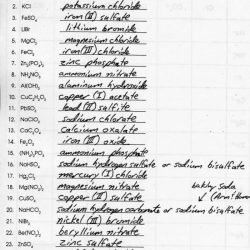 2. KCl potassium chloride
3. FeSO₄ iron (II) sulfate
4. LiBr lithium bromide
5. MgCl₂ magnesium chloride
6. FeCl₃ iron (III) chloride
7. Zn₃(PO₄)₂ zinc phosphate
8. NH₄NO₃ ammonium nitrate
9. Al(OH)₃ aluminum hydroxide
10. CuC₂H₃O₂ copper (I) acetate
11. PbSO₃ lead (II) sulfite
12. NaClO₃ sodium chlorate
13. CaC₂O₄ calcium oxalate
14. Fe₂O₃ iron (III) oxide
15. (NH₄)₃PO₄ ammonium phosphate
16. NaHSO₄ sodium hydrogen sulfate or sodium bisulfate
17. Hg₂Cl₂ mercury (I) chloride
18. Mg(NO₃)₂ magnesium nitrate baking soda
19. CuSO₄ copper (II) sulfate
20. NaHCO₃ sodium hydrogen carbonate or sodium bisulfate
21. NiBr₃ nickel (III) bromide
22. Be(NO₃)₂ beryllium nitrate
23. ZnSO₄ zinc sulfate